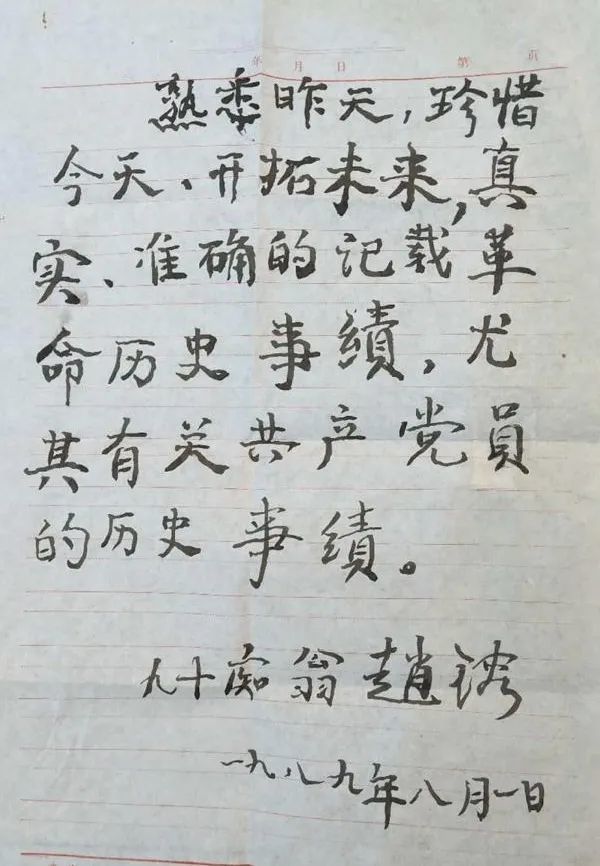 年 月 日 第 页
熟悉昨天，珍惜
今天、开拓未来，真
实、准确的记载革
命历史事績，尤
其有关共产党員
的历史事績。
九十痴翁趙镕
一九八九年八月一日